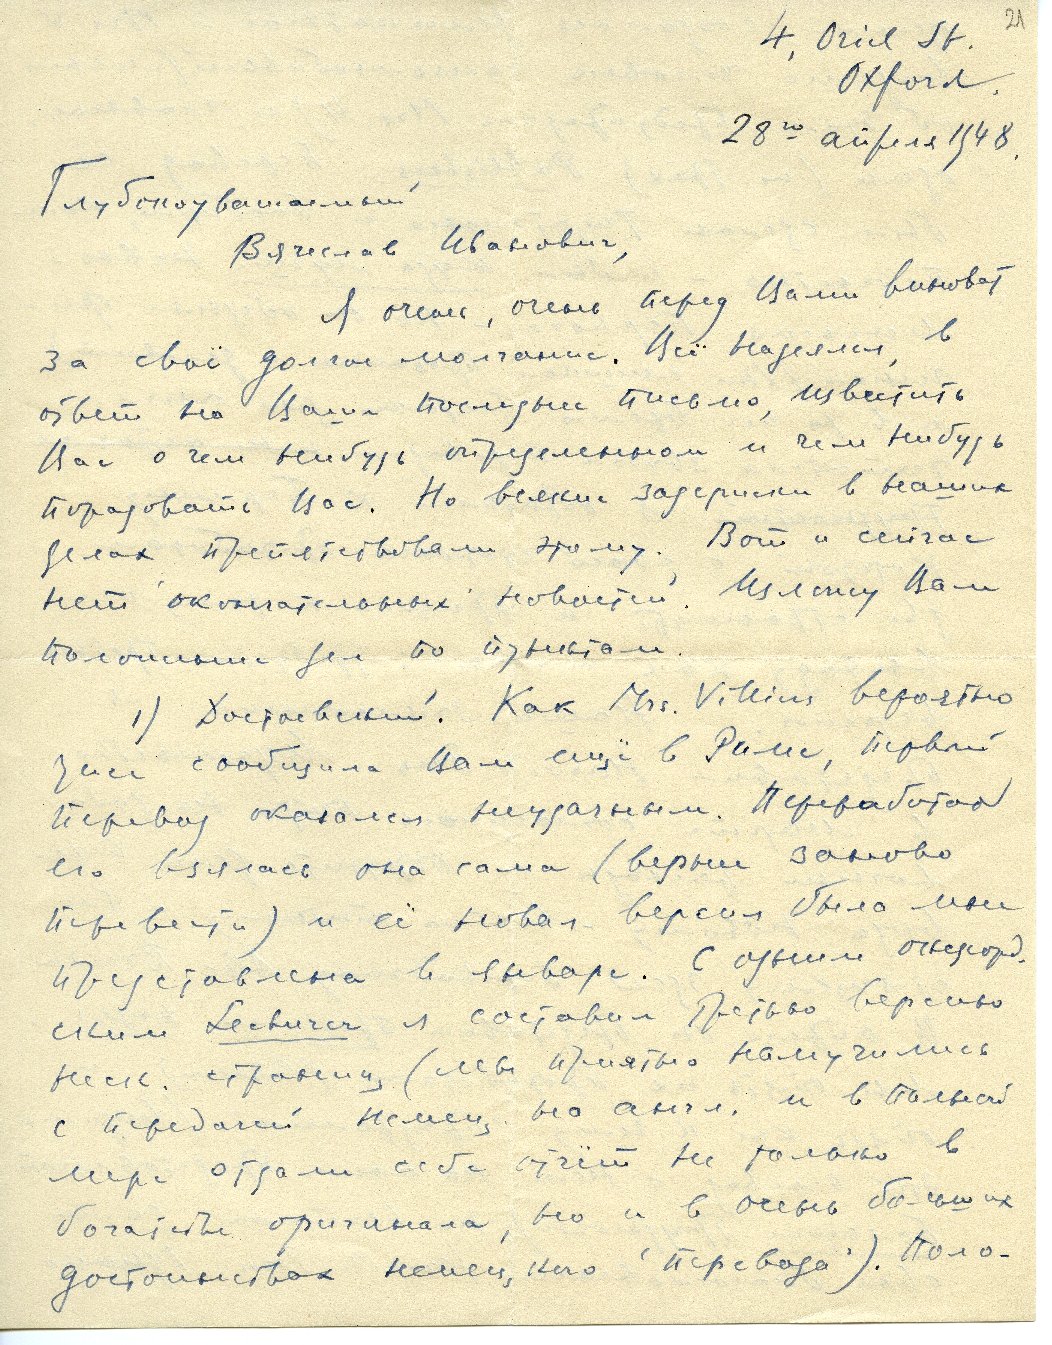 21
4, Oriel St.
Oxford.
28го апреля 1948.
Глубокоуважаемый
Вячеслав Иванович,
Я очень, очень перед Вами виноват
за своё долгое молчание. Всё надеялся, в
ответ на Ваше последнее письмо, известить
Вас о чем нибудь определенном и чем нибудь
порадовать Вас. Но всякие задержки в наших
делах препятствовали этому. Вот и сейчас
нет 'окончательных' новостей. Изложу Вам
положение дел по пунктам.
1) Достоевский. Как Mrs. Villiers вероятно
уже сообщила Вам ещё в Риме, первый
перевод оказался неудачным. Переработать
его взялась она сама (вернее заново
перевести) и её новая версия была мне
представлена в январе. С одним оксфорд-
ским Lecturer я составил третью версию
неск. страниц (мы приятно намучились
с передачей немец. на англ. и в полной
мере отдали себе отчёт не только в
богатстве оригинала, но и в очень больших
достоинствах немецкого 'перевода'). Поло-